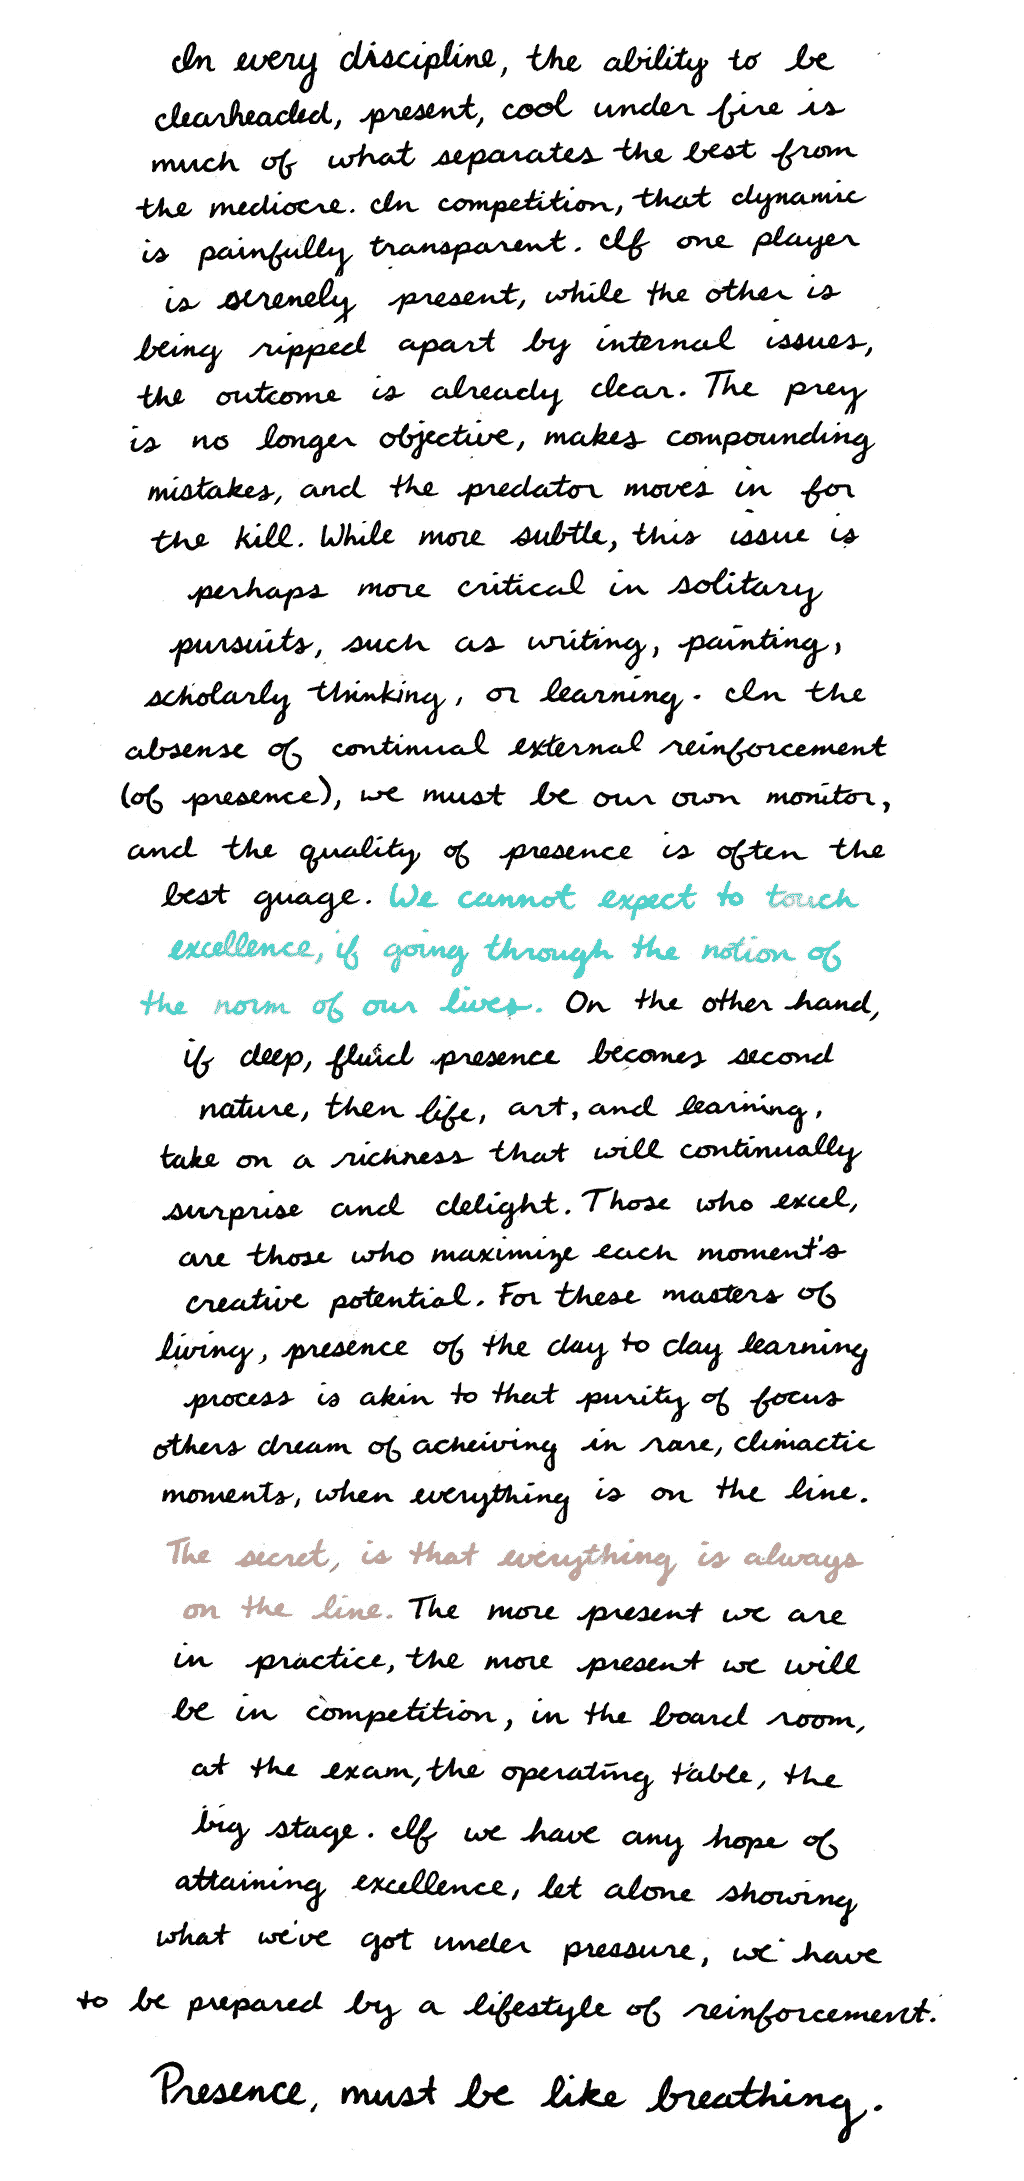 In every discipline, the ability to be
clearheaded, present, cool under fire is
much of what separates the best from
the mediocre. In competition, that dynamic
is painfully transparent. If one player
is serenely present, while the other is
being ripped apart by internal issues,
the outcome is already clear. The prey
is no longer objective, makes compounding
mistakes, and the predator moves in for
the kill. While more subtle, this issue is
perhaps more critical in solitary
pursuits, such as writing, painting,
scholarly thinking, or learning. In the
absense of continual external reinforcement
(of presence), we must be our own monitor,
and the quality of presence is often the
best guage. We cannot expect to touch
excellence, if going through the notion of
the norm of our lives. On the other hand,
if deep, fluid presence becomes second
nature, then life, art, and learning,
take on a richness that will continually
surprise and delight. Those who excel,
are those who maximize each moment's
creative potential. For these masters of
living, presence of the day to day learning
process is akin to that purity of focus
others dream of acheiving in rare, climactic
moments, when everything is on the line.
The secret, is that everything is always
on the line. The more present we are
in practice, the more present we will
be in competition, in the board room,
at the exam, the operating table, the
big stage. If we have any hope of
attaining excellence, let alone showing
what we've got under pressure, we have
to be prepared by a lifestyle of reinforcement.
Presence, must be like breathing.